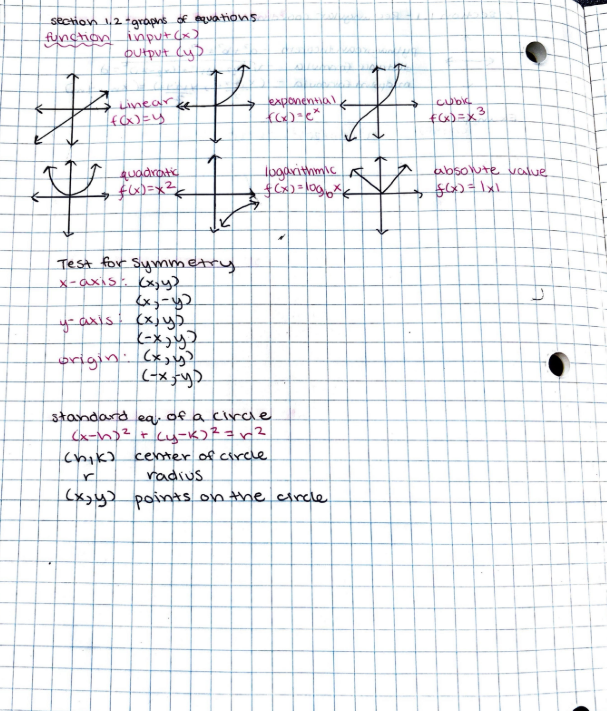 section 1.2 - graphs of equations
function input (x)
output (y)
linear
f(x)=y
exponential
f(x)=e^x
cubic
f(x)=x^3
quadratic
f(x)=x^2
logarithmic
f(x)=log_b x
absolute value
f(x)=|x|
Test for symmetry
x-axis: (x,y)
(x,-y)
y-axis: (x,y)
(-x,y)
origin: (x,y)
(-x,-y)
standard eq. of a circle
(x-h)^2 + (y-k)^2 = r^2
(h,k) center of circle
r radius
(x,y) points on the circle